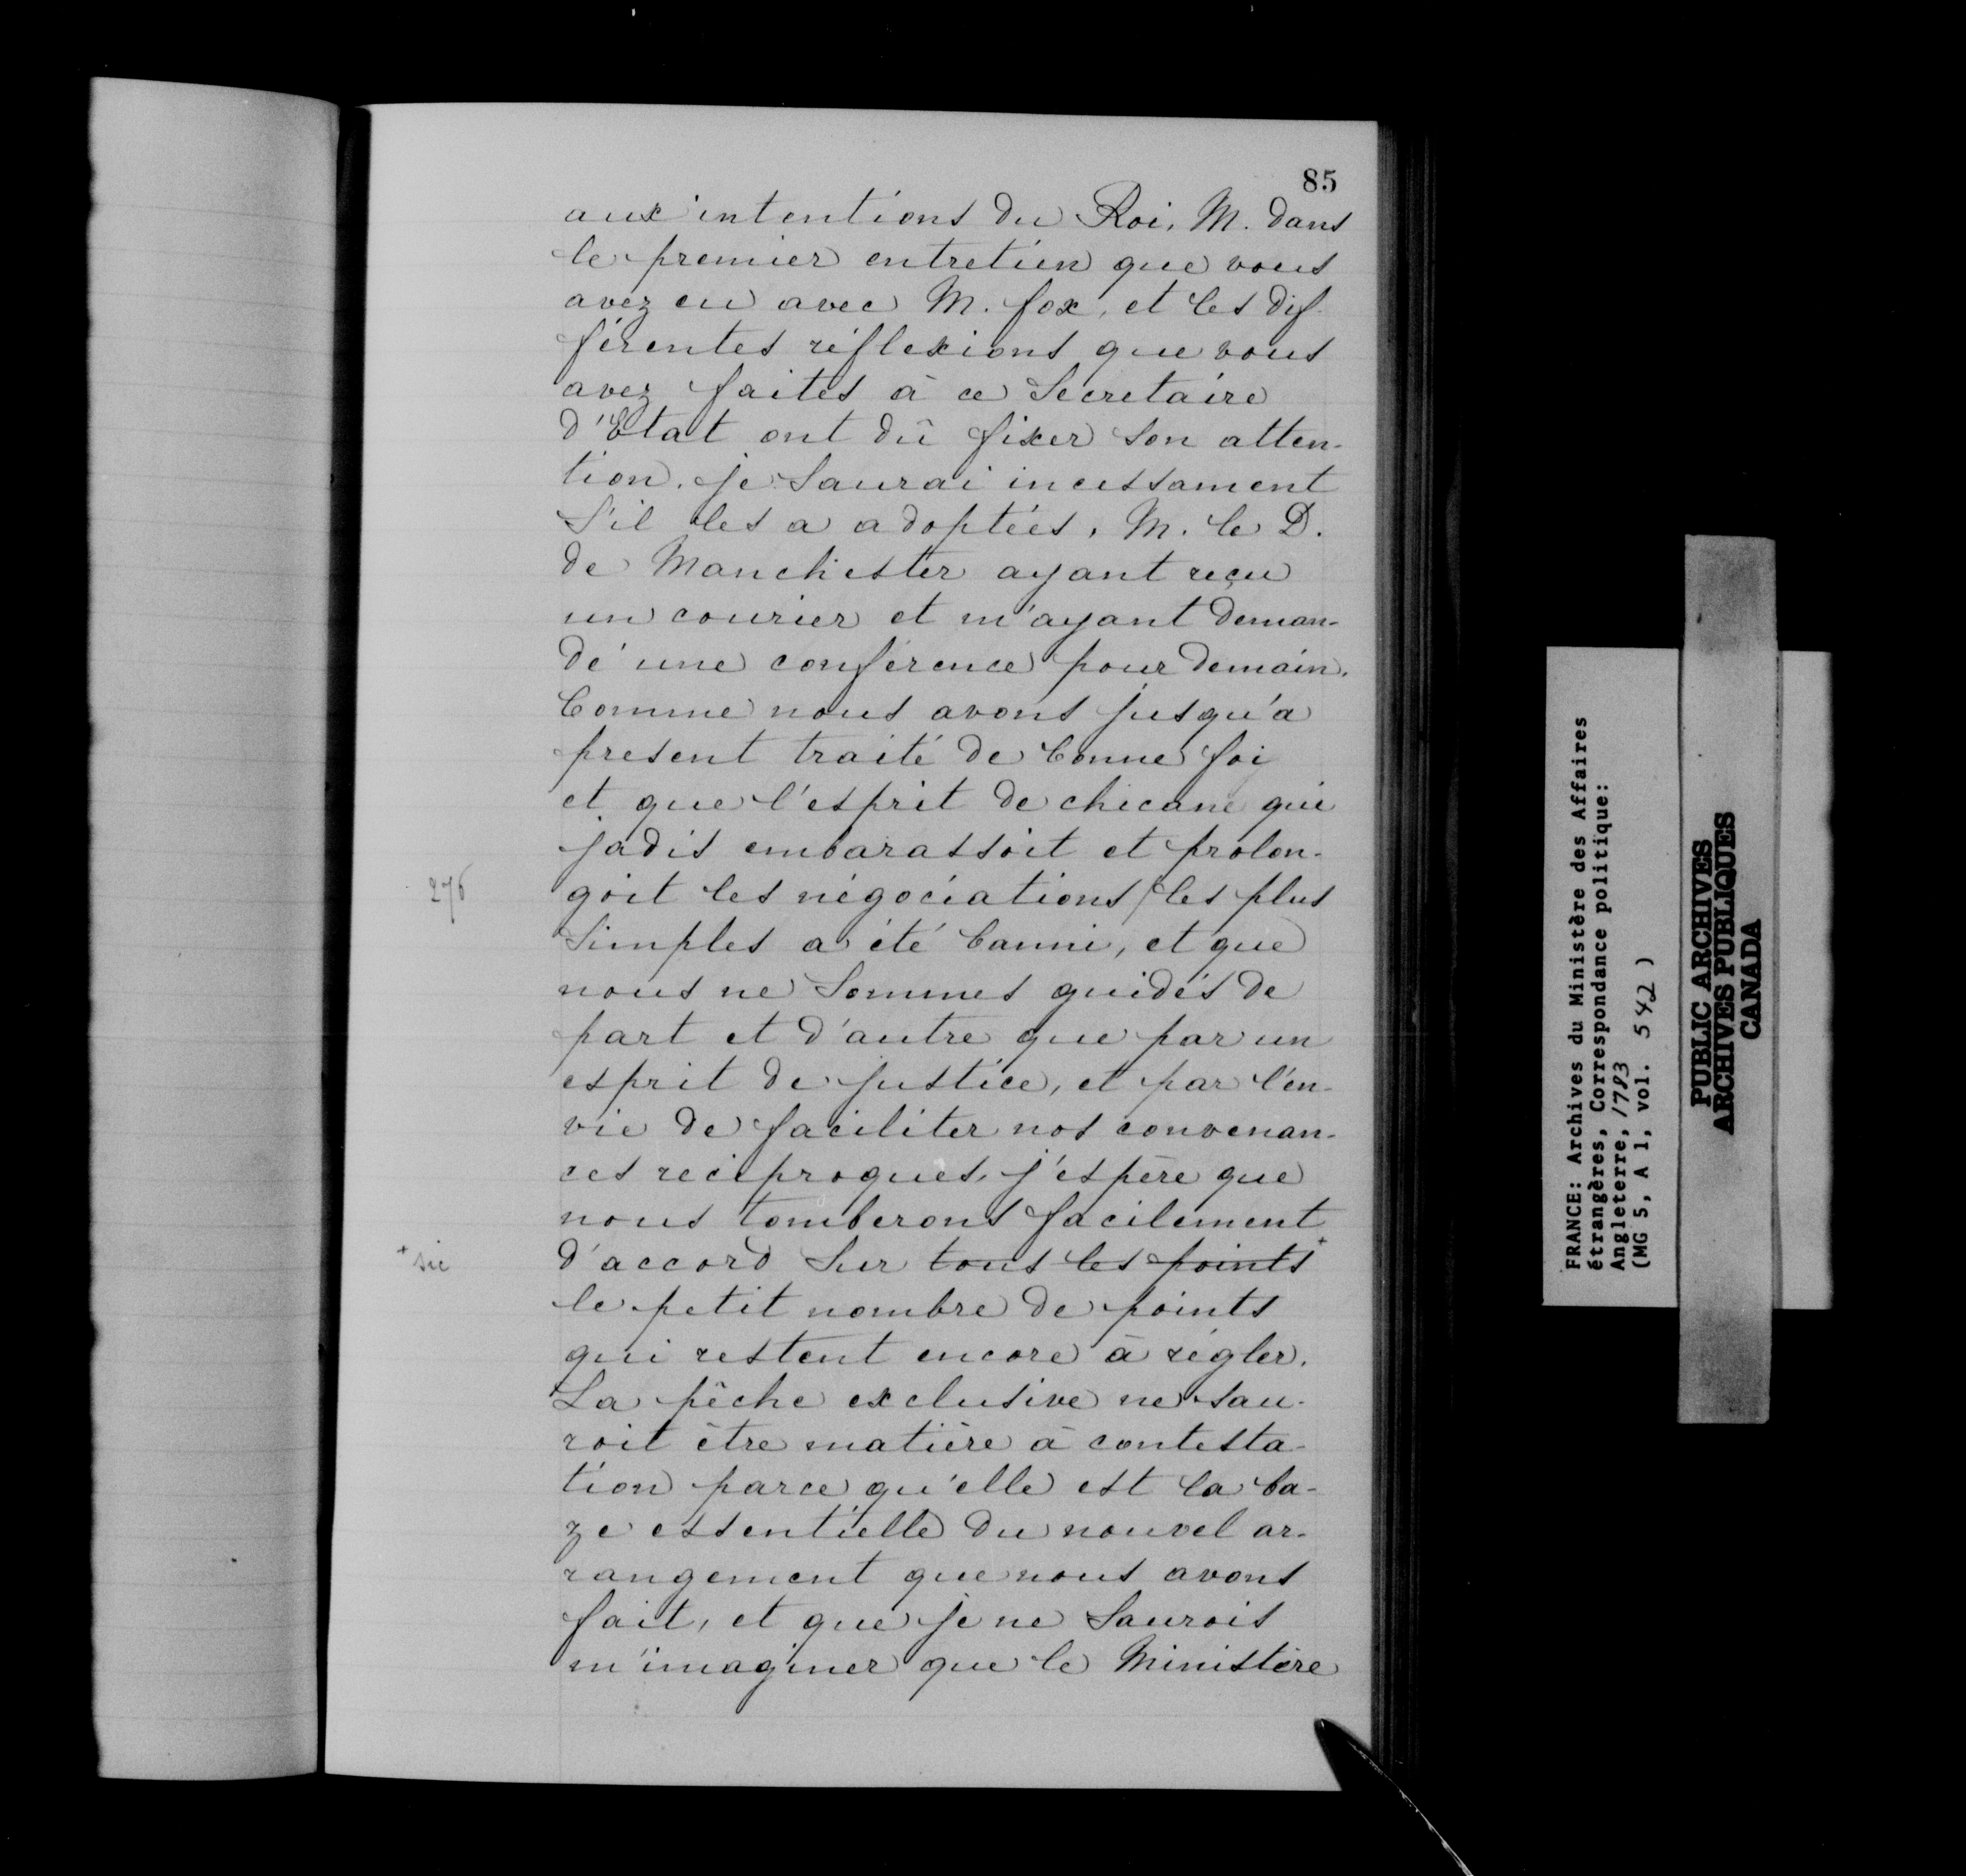 85
aux intentions du Roi, M. dans
le premier entretien que vous
avez eu avec M. fox, et les dif-
férentes réflexions que vous
avez faites à ce Secretaire
d'Etat ont dû fixer son atten-
tion. je saurai incessament
S'il les a adoptées, M. le D.
de Manchester ayant reçu
un courier et m'ayant deman-
dé une conférence pour demain.
Comme nous avons jusqu'a
present traité de bonne foi
et que l'esprit de chicane qui
jadis embarassoit et prolon-
276
goit les négociations / les plus
Simples a été banni, et que
nous ne Sommes guidés de
part et d'autre que par un
esprit de justice, et par l'en-
vie de faciliter nos convenan-
ces reciproques, j'espère que
nous tomberons facilement
+ sic
d'accord Sur tous les points +
le petit nombre de points
qui restent encore à régler.
La pêche exclusive ne sau-
roit être matière à contesta-
tion parce qu'elle est la ba-
ze essentielle du nouvel ar-
rangement que nous avons
fait, et que je ne Saurois
m'imaginer que le Ministère
FRANCE: Archives du Ministère des Affaires
étrangères, Correspondance politique:
Angleterre, 1783
(MG 5, A 1, vol. 542 )
PUBLIC ARCHIVES
ARCHIVES PUBLIQUES
CANADA